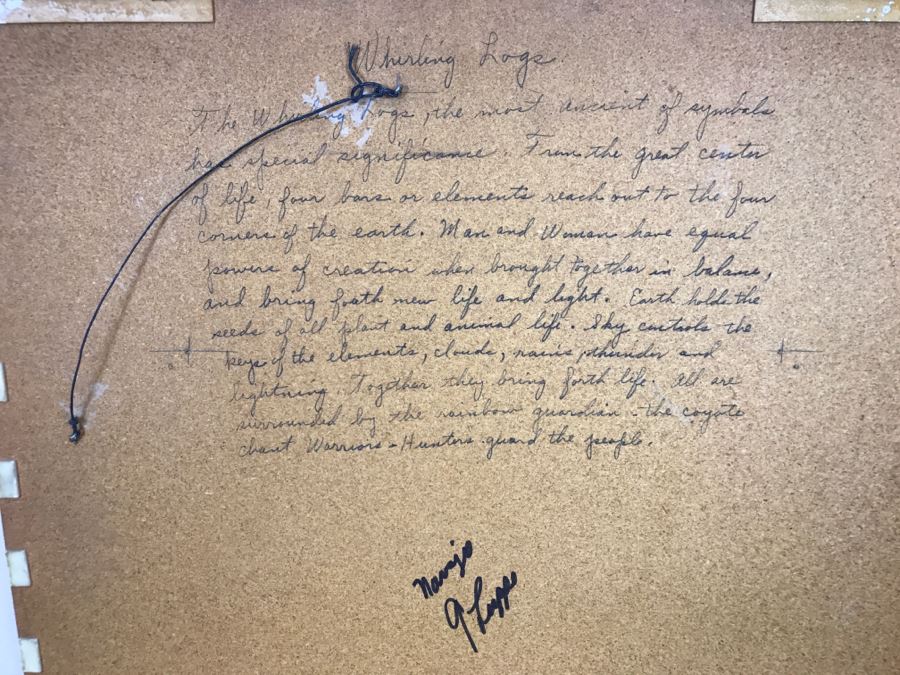 Whirling Logs
The Whirling Logs, the most ancient of symbols
has special significance. From the great center
of life, four bars or elements reach out to the four
corners of the earth. Man and Woman have equal
powers of creation when brought together in balance,
and bring forth new life and light. Earth holds the
seeds of all plant and animal life. Sky controls the
keys of the elements, clouds, rains, thunder and
lightning. Together they bring forth life. All are
surrounded by the rainbow guardian - the coyote
chant Warriors - Hunters guard the people.
Navajo